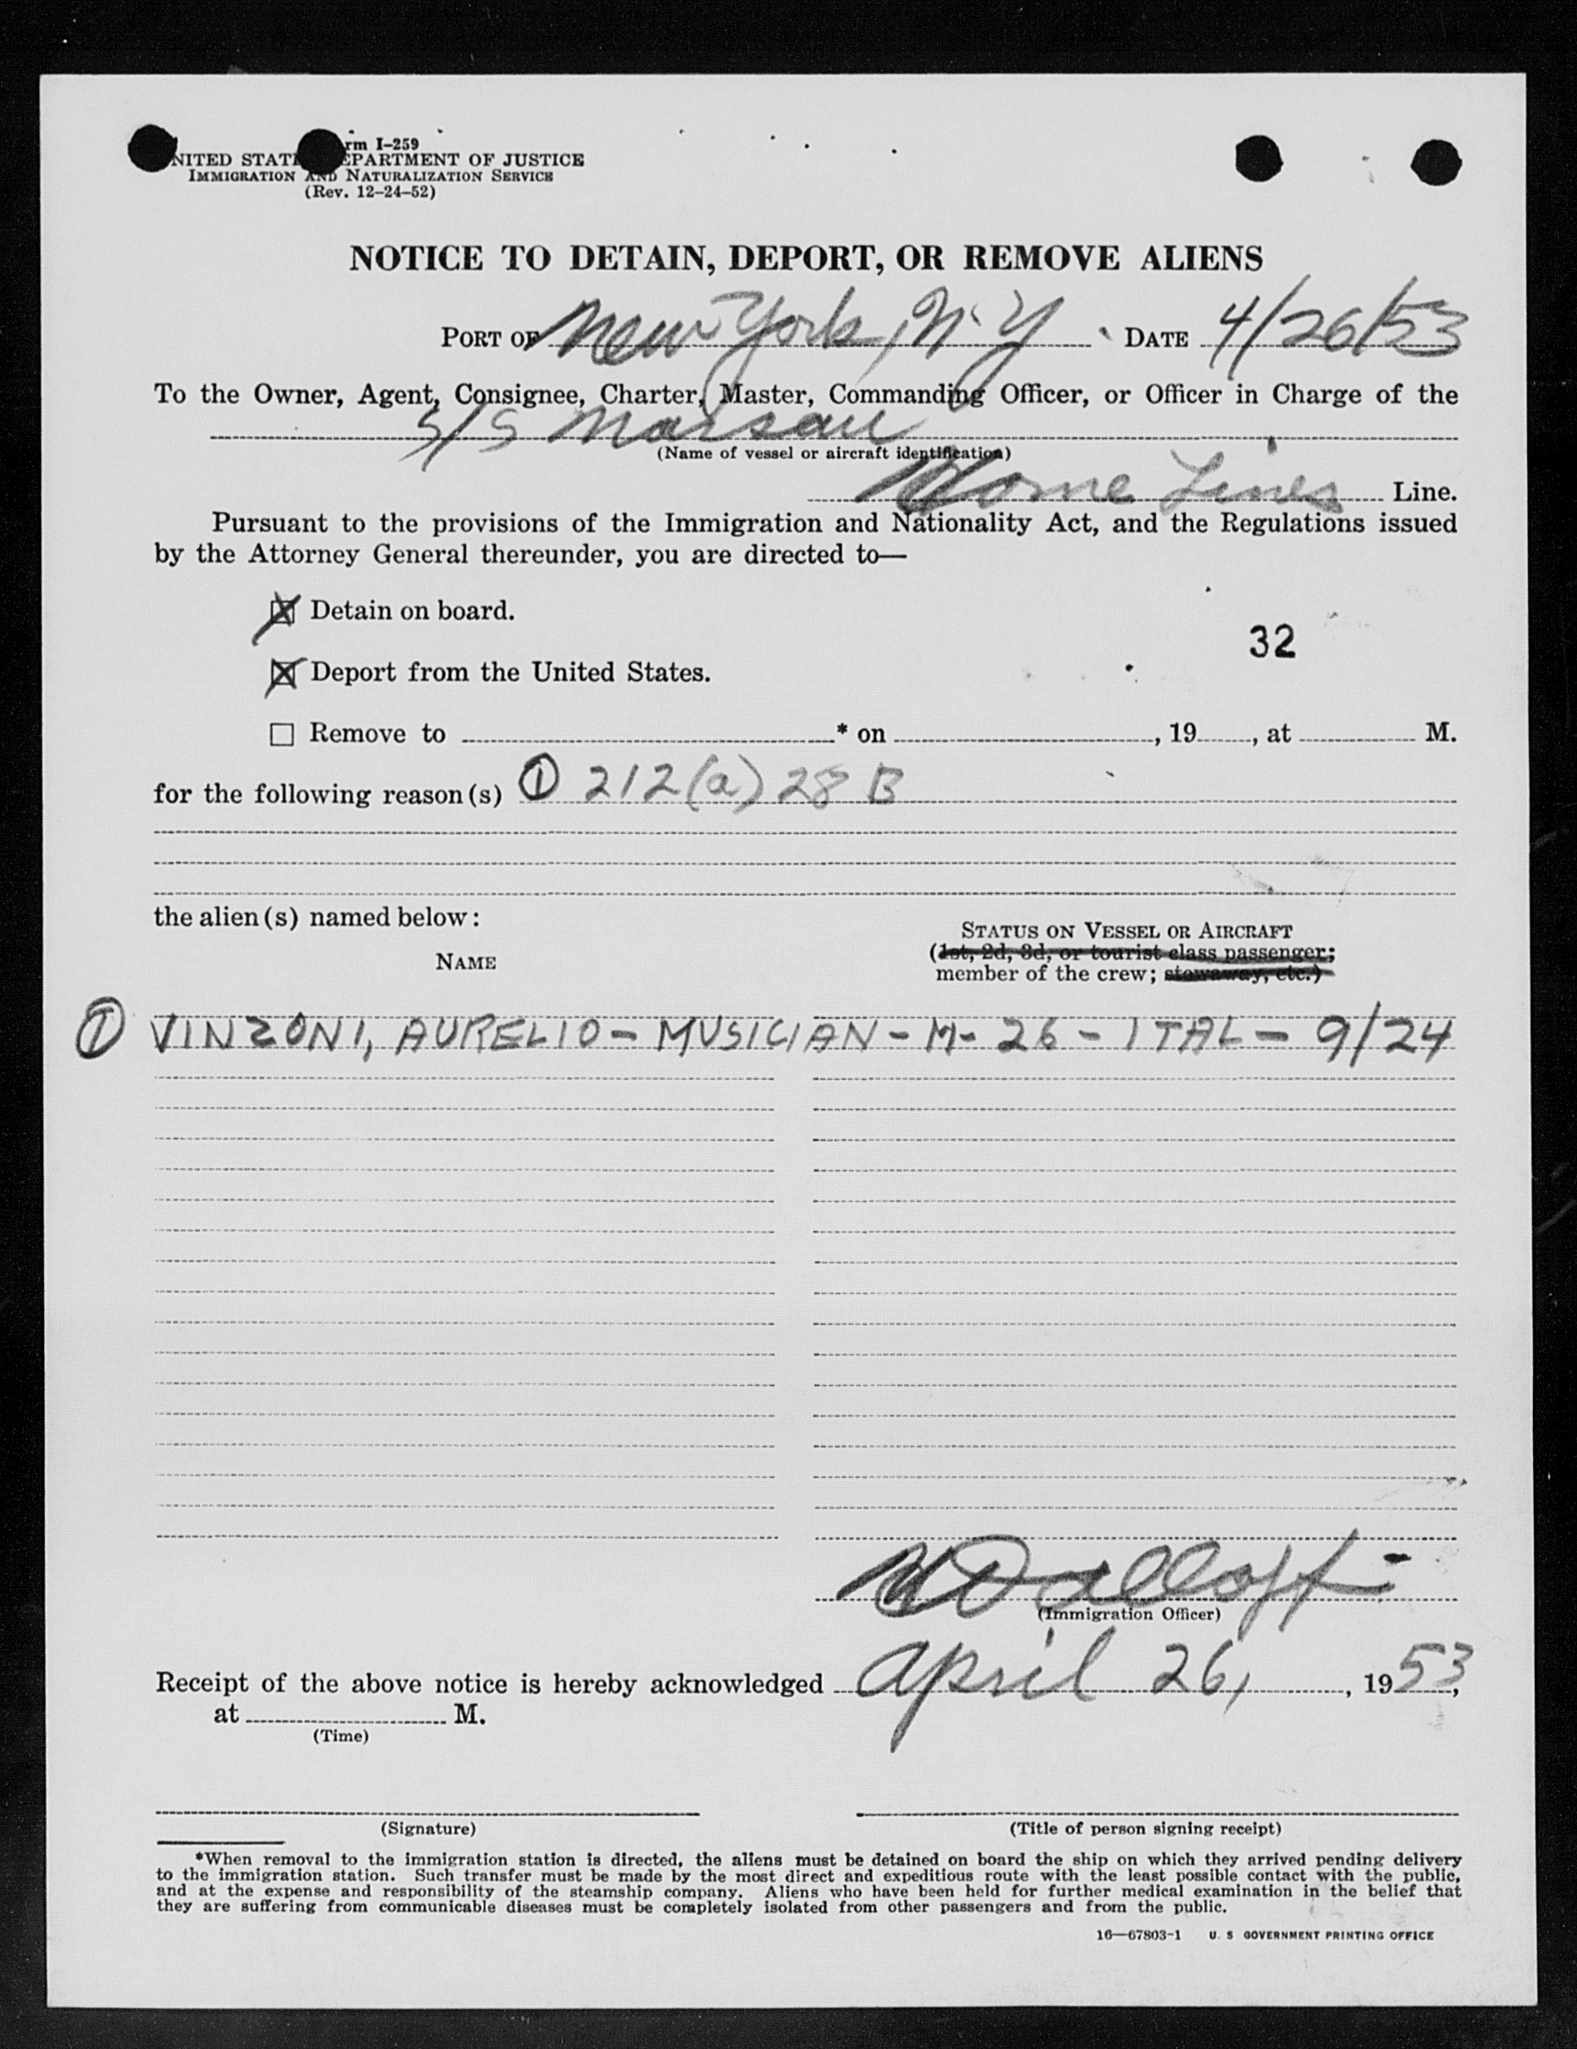 rm I-259
NITED STAT EPARTMENT OF JUSTICE
IMMIGRATION AND NATURALIZATION SERVICE
(Rev. 12-24-52)
NOTICE TO DETAIN, DEPORT, OR REMOVE ALIENS
PORT OF New York, N.Y DATE 4/26/53
To the Owner, Agent, Consignee, Charter, Master, Commanding Officer, or Officer in Charge of the
S/S
(Name of vessel or aircraft identification)
Home Lines Line.
Pursuant to the provisions of the Immigration and Nationality Act, and the Regulations issued
by the Attorney General thereunder, you are directed to—
☒ Detain on board.
32
☒ Deport from the United States.
☐ Remove to * on , 19 , at M.
for the following reason(s) ① 212(a) 28 B
the alien(s) named below:
STATUS ON VESSEL OR AIRCRAFT
NAME
(1st, 2d, 3d, or tourist class passenger;
member of the crew; stowaway, etc.)
① VINZONI, AURELIO - MUSICIAN - M - 26 - ITAL - 9/24
(Immigration Officer)
Receipt of the above notice is hereby acknowledged April 26, , 1953,
at M.
(Time)
(Signature) (Title of person signing receipt)
*When removal to the immigration station is directed, the aliens must be detained on board the ship on which they arrived pending delivery
to the immigration station. Such transfer must be made by the most direct and expeditious route with the least possible contact with the public,
and at the expense and responsibility of the steamship company. Aliens who have been held for further medical examination in the belief that
they are suffering from communicable diseases must be completely isolated from other passengers and from the public.
16—67803-1 U. S GOVERNMENT PRINTING OFFICE